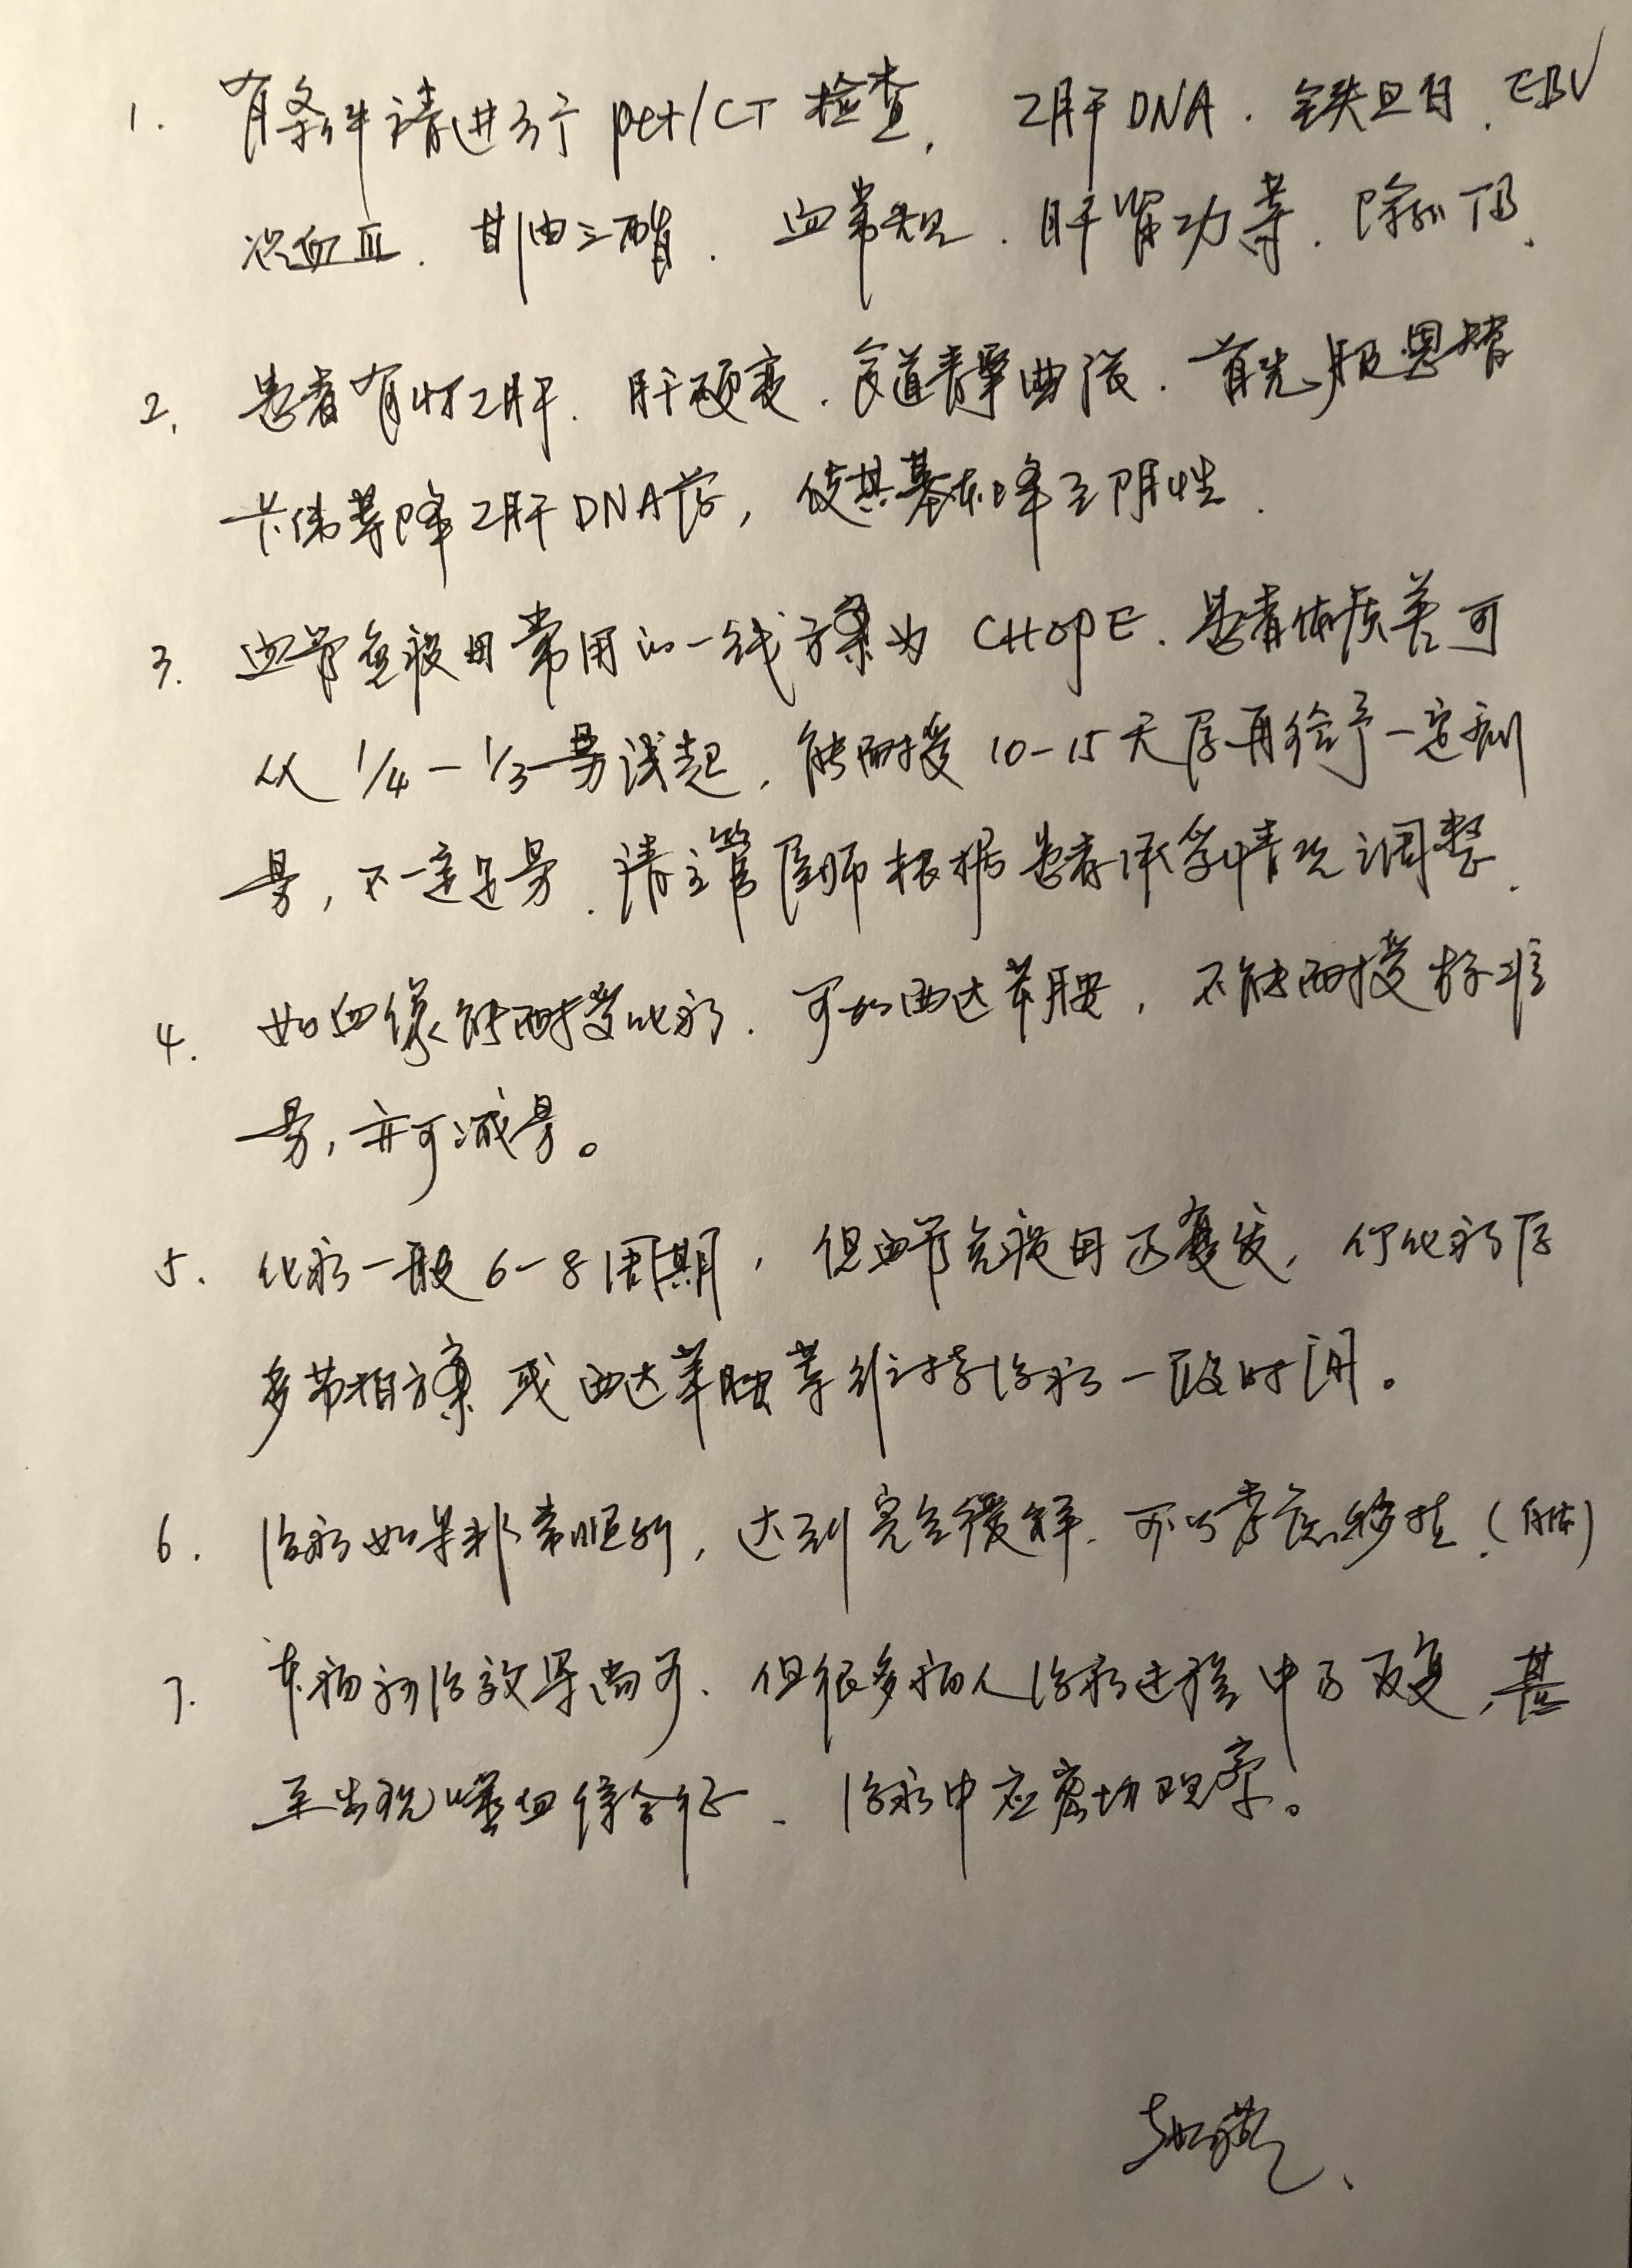 1. 有条件请进行 pet/CT 检查, 乙肝DNA. 铁旦白. EBV
凝血Ⅲ. 甘油三酯. 血常规. 肝肾功等. 除外TB.
2. 患者有时乙肝. 肝硬变. 食道静脉曲张. 首先服恩替
卡伟等降乙肝DNA药, 使其基本降至阴性.
3. 血管免疫母常用的一线方案为 CHOPE. 患者体质差可
从 1/4-1/3量试起, 能耐受 10-15天后再给予一定剂
量, 不一定足量. 请主管医师根据患者承受情况调整.
4. 如血像能耐受化疗. 可加西达苯胺, 不能耐受标准
量, 亦可减量。
5. 化疗一般6-8周期, 但血管免疫母易复发, 停化疗后
多节拍方案或西达苯胺等维持治疗一段时间。
6. 治疗如果非常顺利, 达到完全缓解. 可以考虑移植.(自体)
7. 本病初治效果尚可、但很多病人治疗过程中易反复, 甚
至出现噬血综合征、治疗中应密切观察。